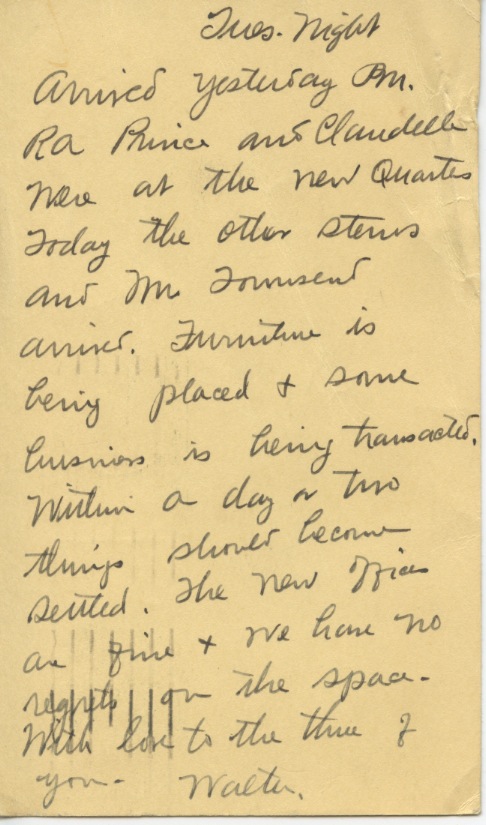 Tues. Night
Arrived yesterday Pm.
Ra Prince and Claudelle
were at the new Quarters
Today the other stenos
and Mr Townsend
arrived. Furniture is
being placed & some
business is being transacted.
Within a day or two
things should become
settled. The new offices
are fine & we have no
regrets on the space.
With love to the three of
you - Walter.